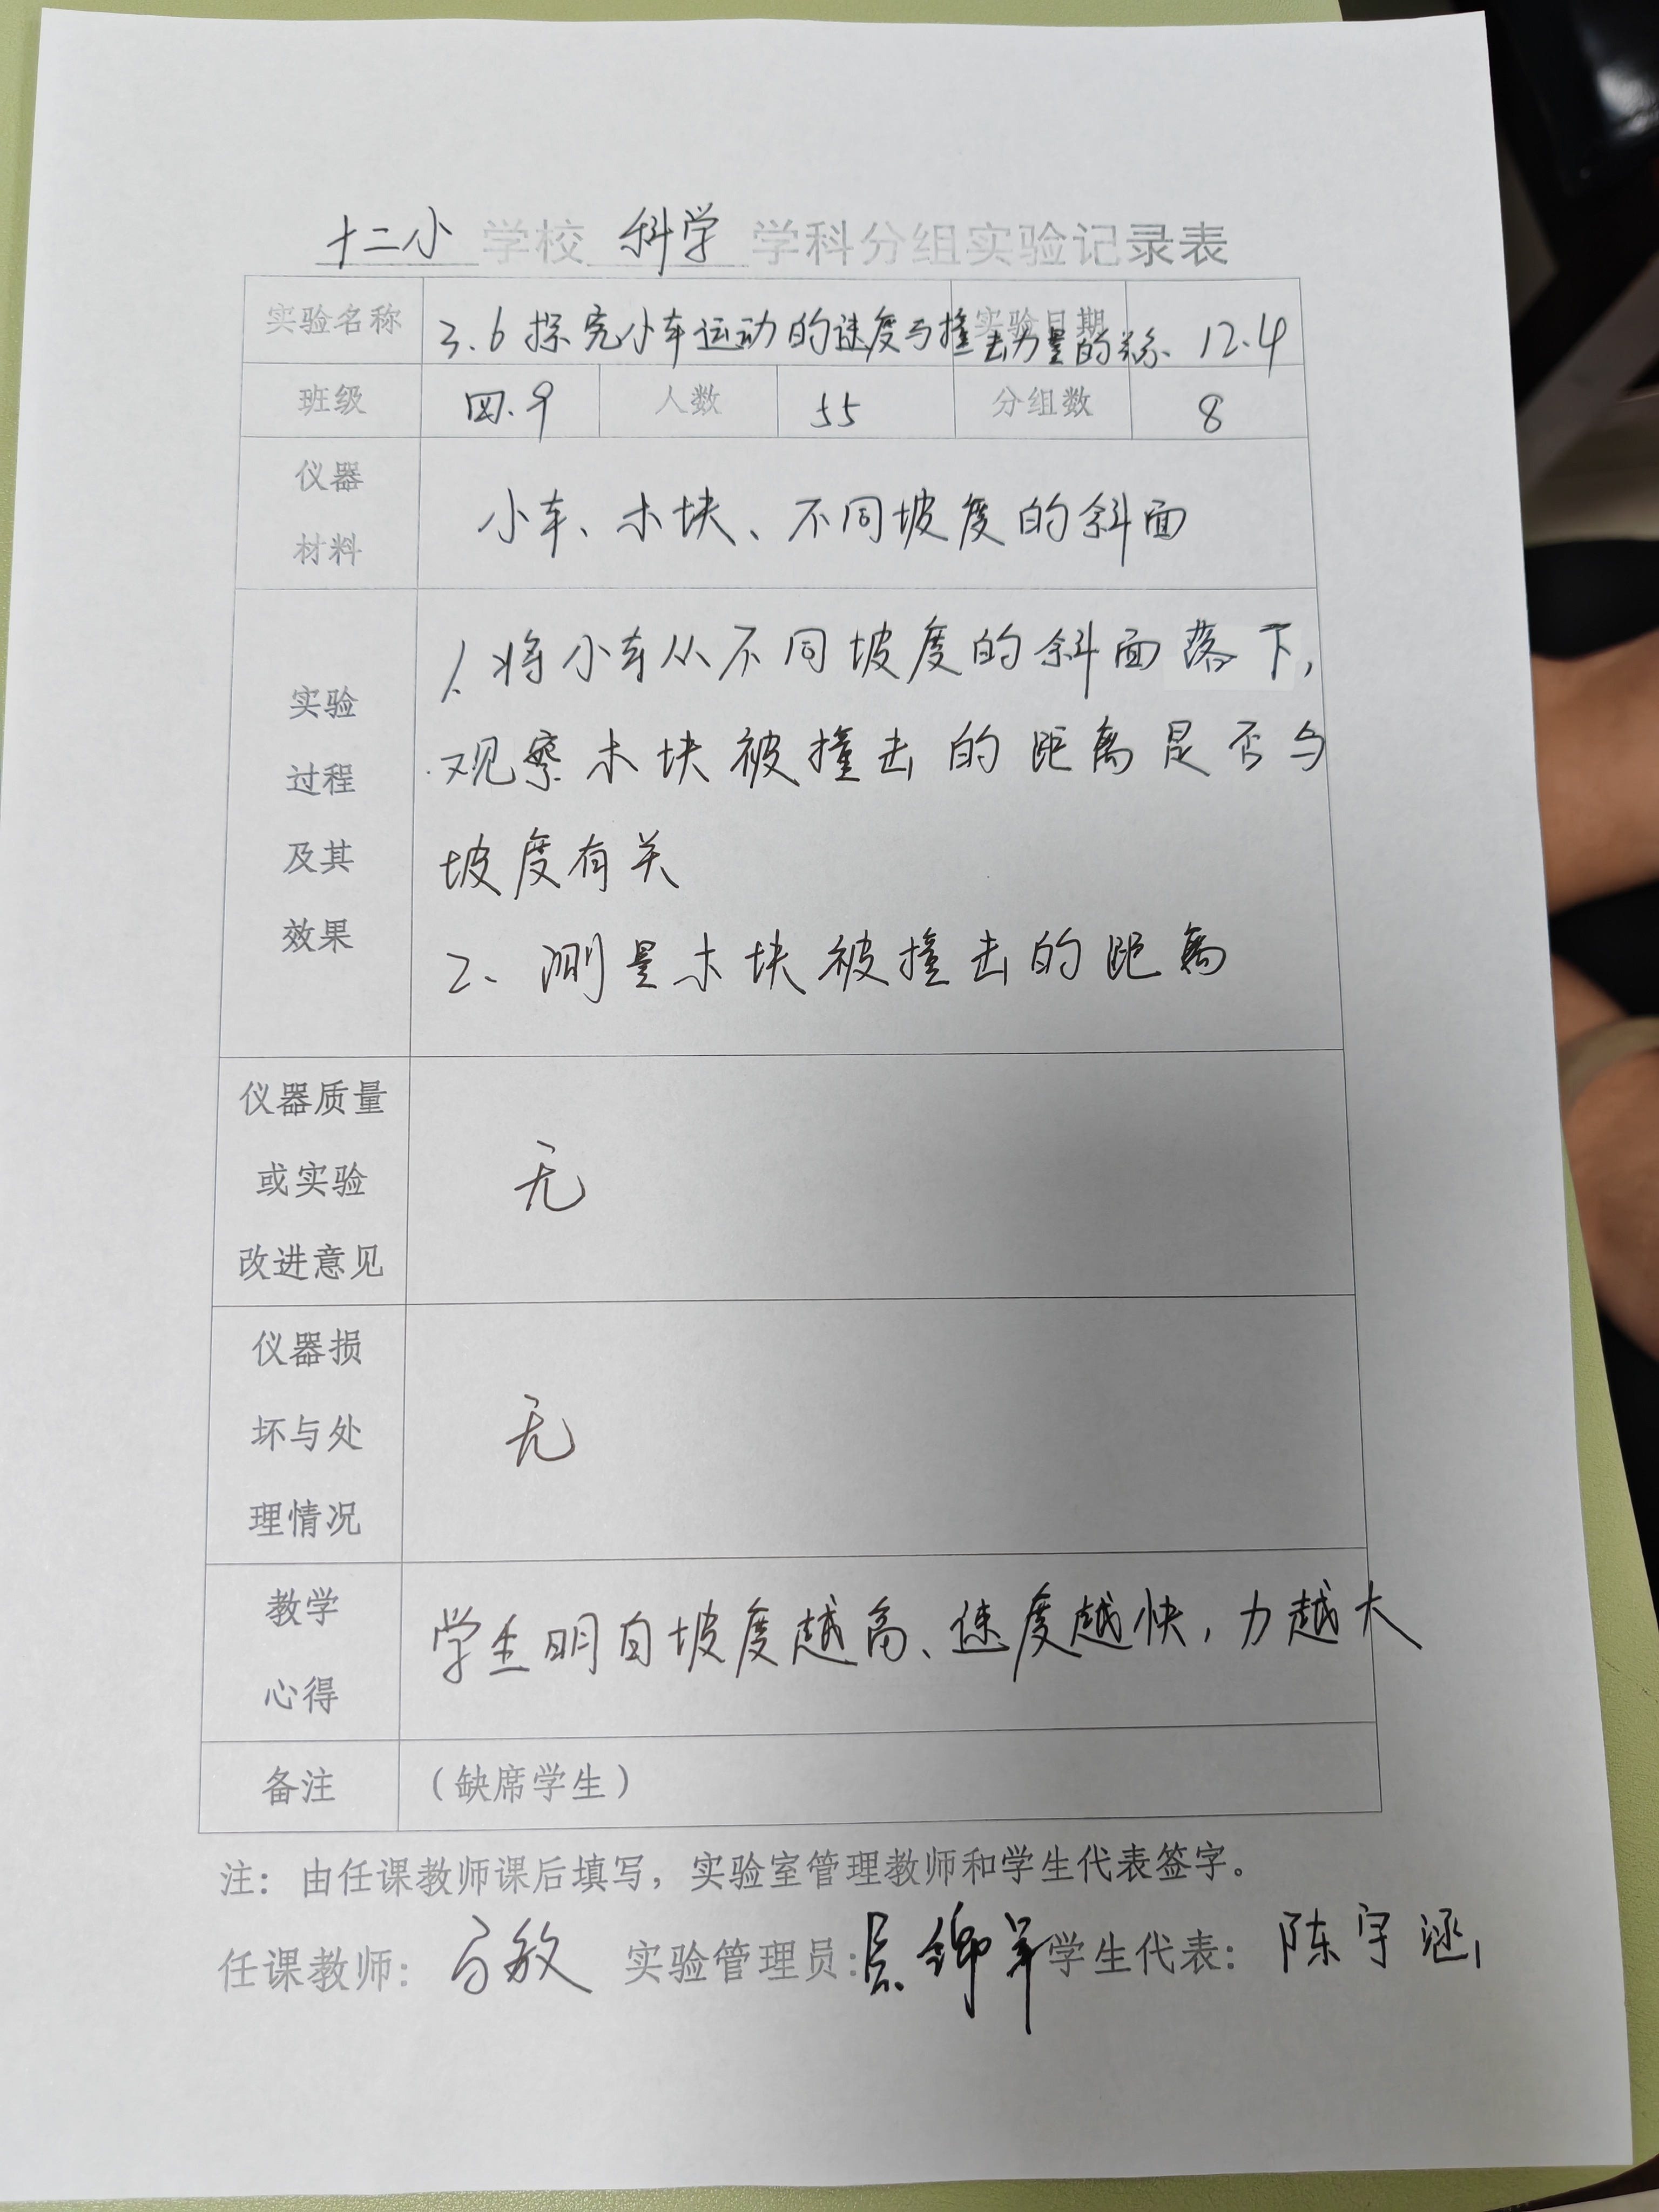 十二小 学校 科学 学科分组实验记录表
实验名称 3.6 探究小车运动的速度与撞击力量的关系 实验日期 12.4
班级 四.9 人数 55 分组数 8
仪器
材料
小车、木块、不同坡度的斜面
实验
过程
及其
效果
1.将小车从不同坡度的斜面落下,
观察木块被撞击的距离是否与
坡度有关
2、测量木块被撞击的距离
仪器质量
或实验
改进意见
无
仪器损
坏与处
理情况
无
教学
心得
学生明白坡度越高、速度越快,力越大
备注 (缺席学生)
注：由任课教师课后填写，实验室管理教师和学生代表签字。
任课教师: 敏 实验管理员: 锦 学生代表: 陈宇涵